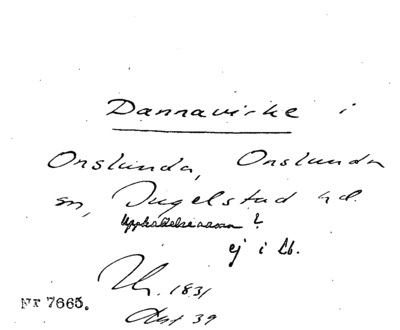 Dannavirke i
Onslunda, Onslunda
sn, Ingelstad hd.
Uppkallelsenamn?
ej i Lb.
1831
Nr 7665.
39